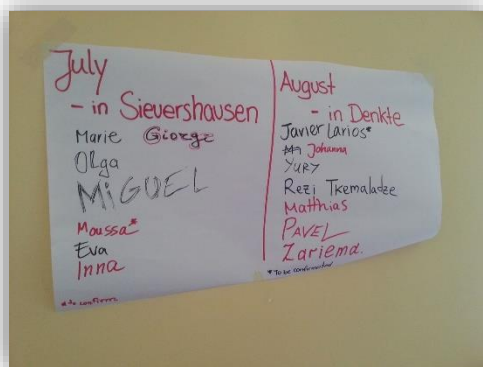 July
- in Sievershausen
Marie Giorgi
Olga
MIGUEL
Moussa*
Eva
Inna
*to confirm
August
- in Denkte
Javier Larios*
Johanna
YURY
Rezi Tkemaladze
Matthias
PAVEL
Zariema.
* To be confirmed